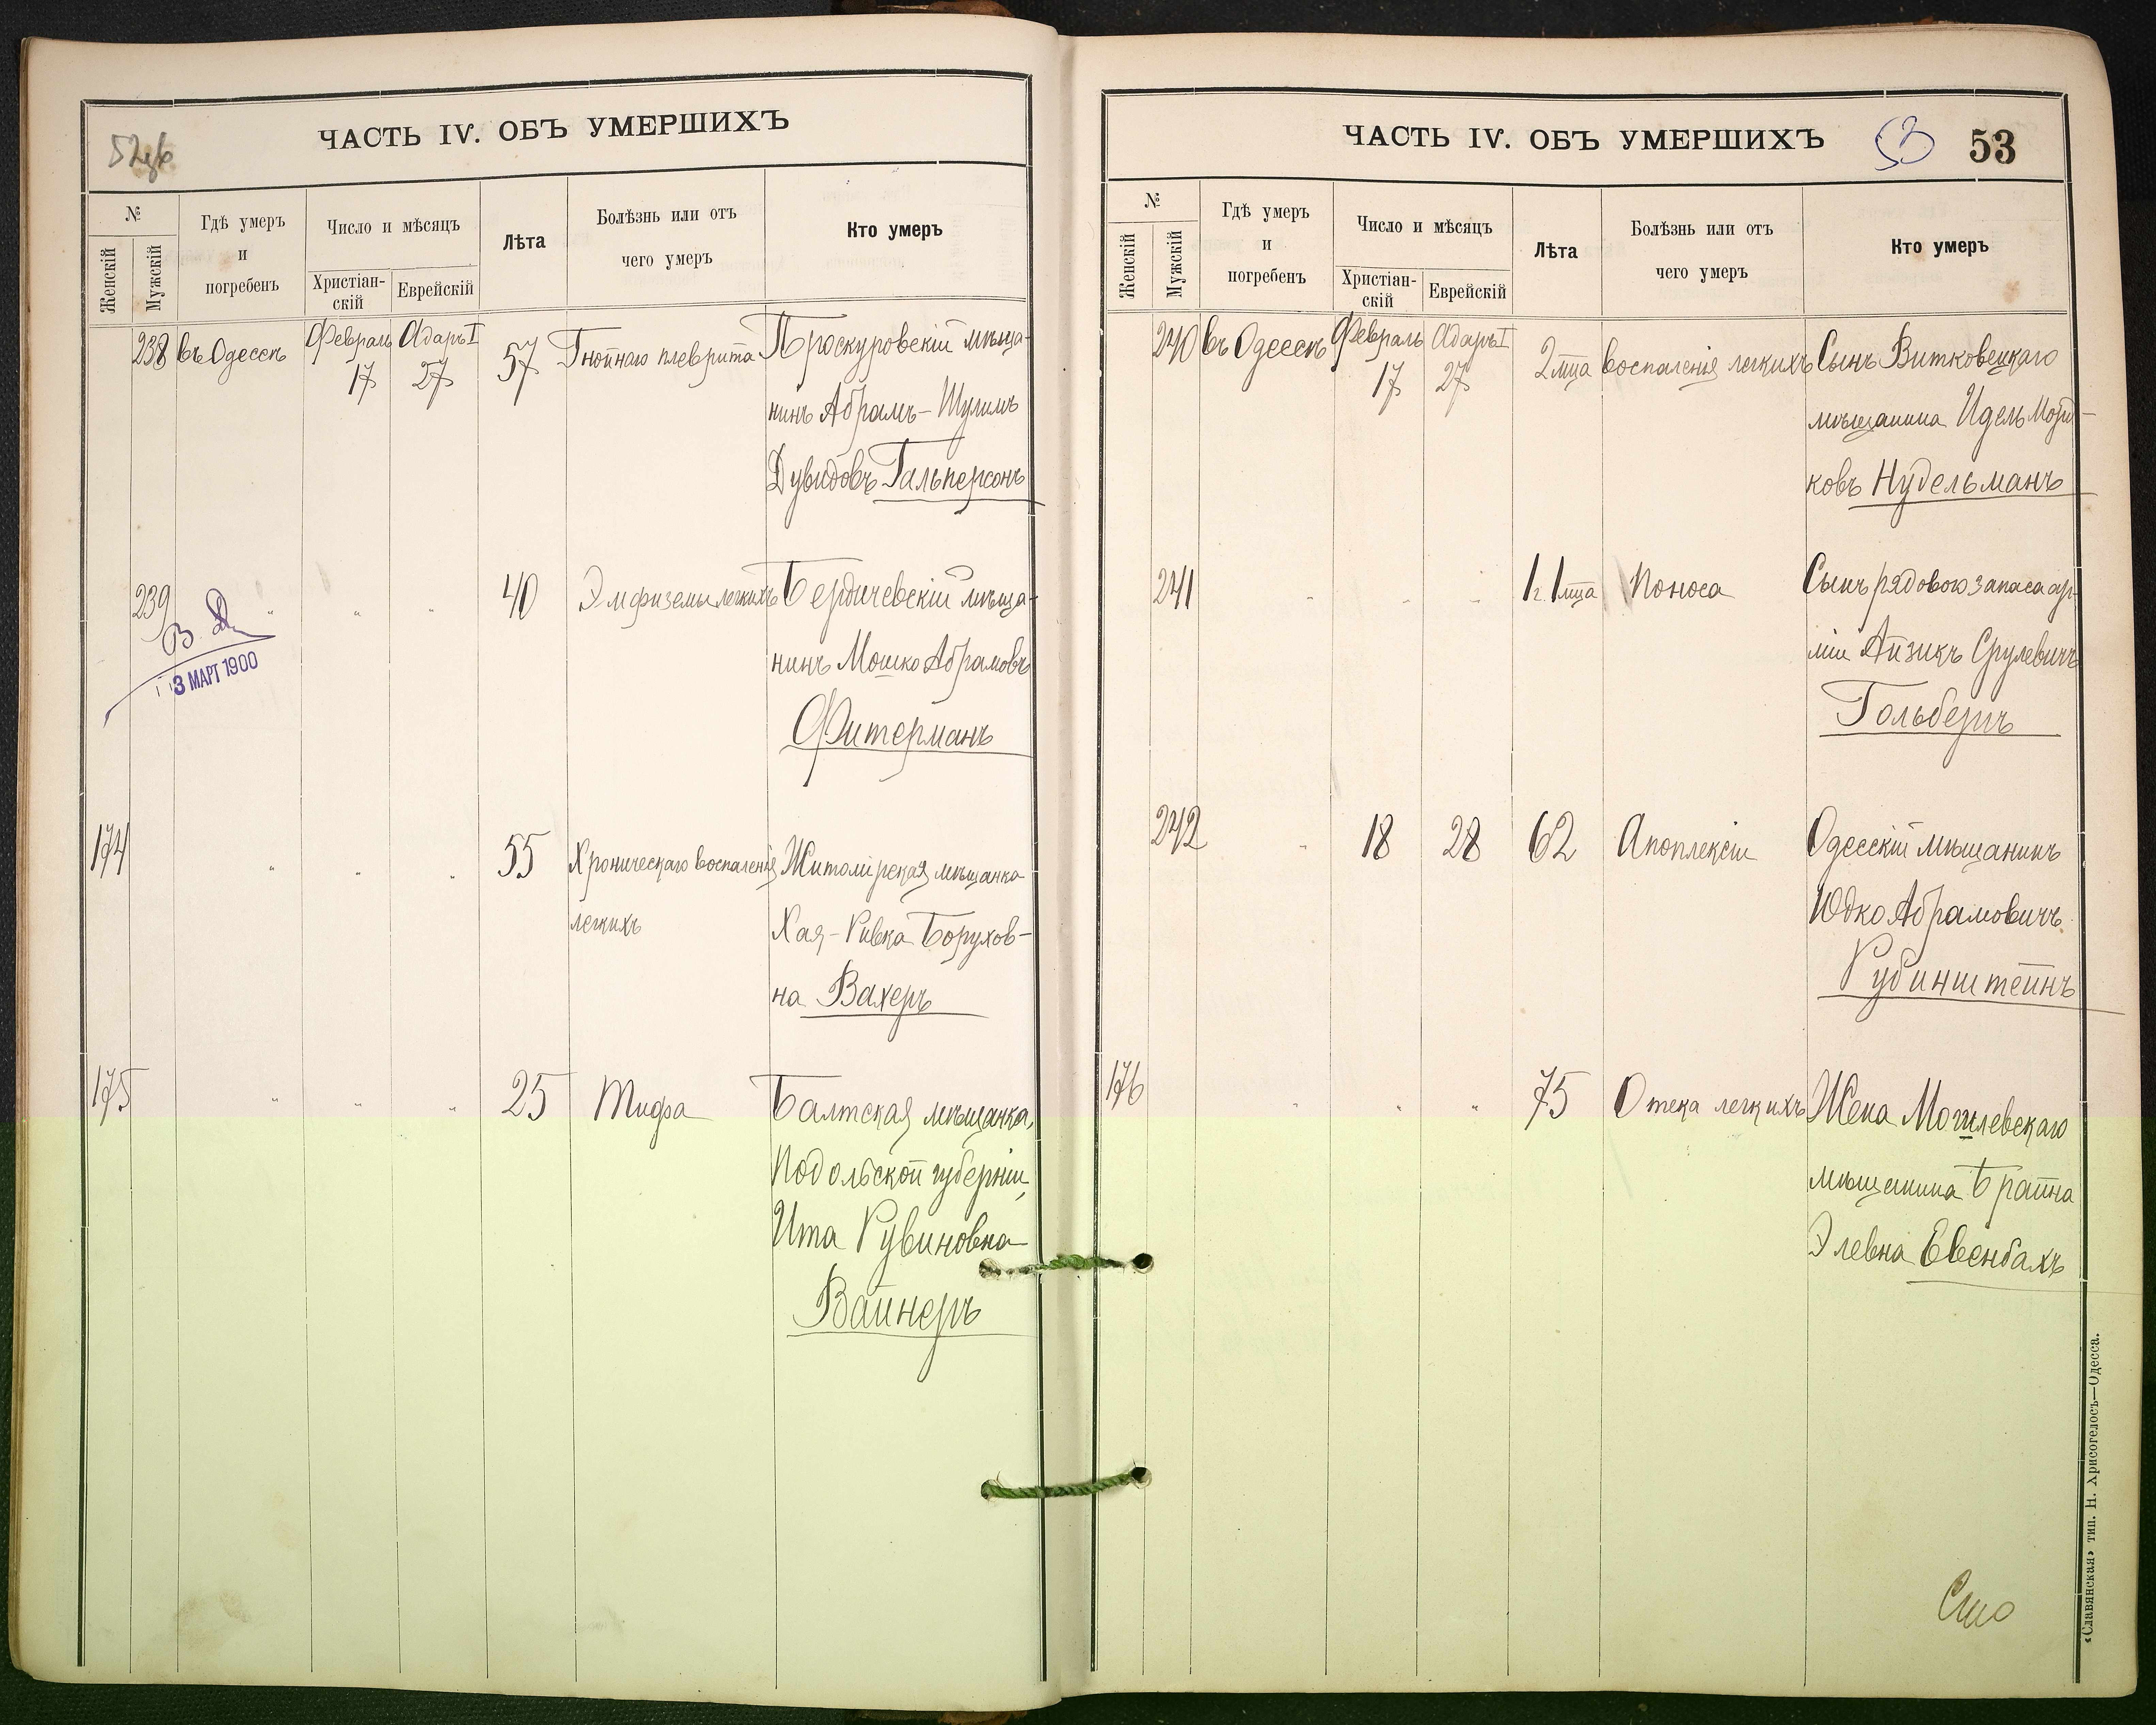 ЧАСТЬ IV. ОБЪ УМЕРШИХЪ
№
Женскій
Мужскій
Гдѣ умеръ
и
погребенъ
Число и мѣсяцъ
Христіан-
скій
Еврейскій
Лѣта
Болѣзнь или отъ
чего умеръ
Кто умеръ
238 въ Одессѣ Февраль Адаръ I 57 Гнойнаго плеврита Проскуровскій мѣща-
17 27
нинъ Абрамъ-Шулимъ
Дувидовъ Гальперсонъ
239 " " " 40 Эмфиземы легкихъ Бердичевскій мѣща-
нинъ Мошко Абрамовъ
Фитерманъ
В.
3 МАРТ 1900
174 " " " 55 Хроническаго воспаленія Житомірская мѣщанка
легкихъ Хая-Ривка Борухов-
на Вахеръ
175 " " " 25 Тифа Балтская мѣщанка,
Подольской губерніи,
Ита Рувиновна
Вайнеръ
ЧАСТЬ IV. ОБЪ УМЕРШИХЪ
53 53
№
Женскій
Мужскій
Гдѣ умеръ
и
погребенъ
Число и мѣсяцъ
Христіан-
скій
Еврейскій
Лѣта
Болѣзнь или отъ
чего умеръ
Кто умеръ
240 въ Одессѣ Февраль Адаръ I 2 мца воспаленія легкихъ Сынъ Витковецкаго
17 27
мѣщанина Идель Морд-
ковъ Нудельманъ
241 " " " 1 г. 1 мца Поноса Сынъ рядового запаса ар-
міи Айзикъ Срулевичъ
Гольбергъ
242 " 18 28 62 Апоплексіи Одесскій мѣщанинъ
Юдко Абрамовичъ
Рубинштейнъ
176 " " " 75 Отека легкихъ Жена Могилевскаго
мѣщанина Брайна
Элевна Евенбахъ
«Славянская» тип. Н. Хрисогелосъ—Одесса.